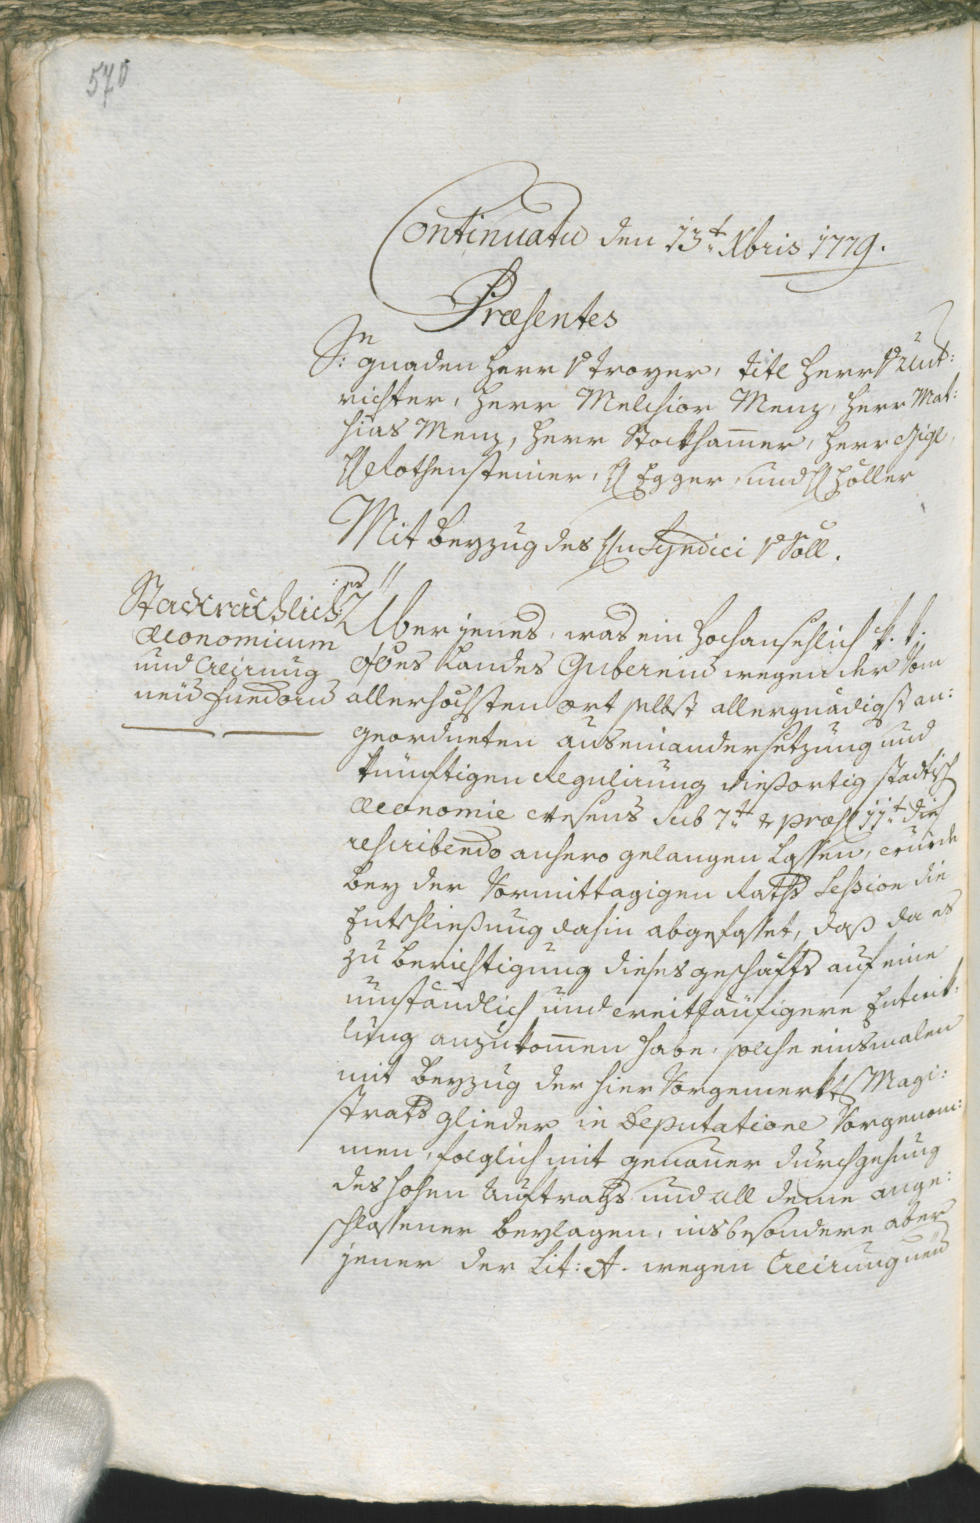 570
Continuatio den 13.t Xbris 1779.
Præsentes
Sr. gnaden Herr v Troyer, titl Herr v
richter, Herr Melchior Menz, Herr Mat:
hias Menz, Herr Stockhamer, Herr Gigl,
H Rothensteiner, H Egger, und H Höller
Mit beyzug des Hn Syndici v Söll.
Stadträthlich:es
Œconomicum
und Creirung
neüs Fundorus
Über jenes, was ein hochansehlich t. t.
Oöes Landes Gubernium wegen der vom
allerhöchsten ort selbst allergnädigst an:
geordneten auseinandersetzung und
künftigen Regulirung diesortig stadtisch
Œconomie wesens sub 7.t & præs 11.t dies
rescribendo anhero gelangen lassen, wurde
bey der Vormittagigen Raths Session die
Entschließung dahin abgefasset, daß da es
zu berichtigung dieses geschäfts auf eine
umständlich und weitläufigere Entwik:
lung anzukomen habe, solche einsmalen
mit beyzug der hier vorgemerkt Magi:
strats glieder in Deputatione vorgenom:
men, folglich mit genauer durchgehung
des hohen Auftrags und all deme ange:
schlossener beylagen, insbesondere aber
jener der Lit: A. wegen Creirung neü